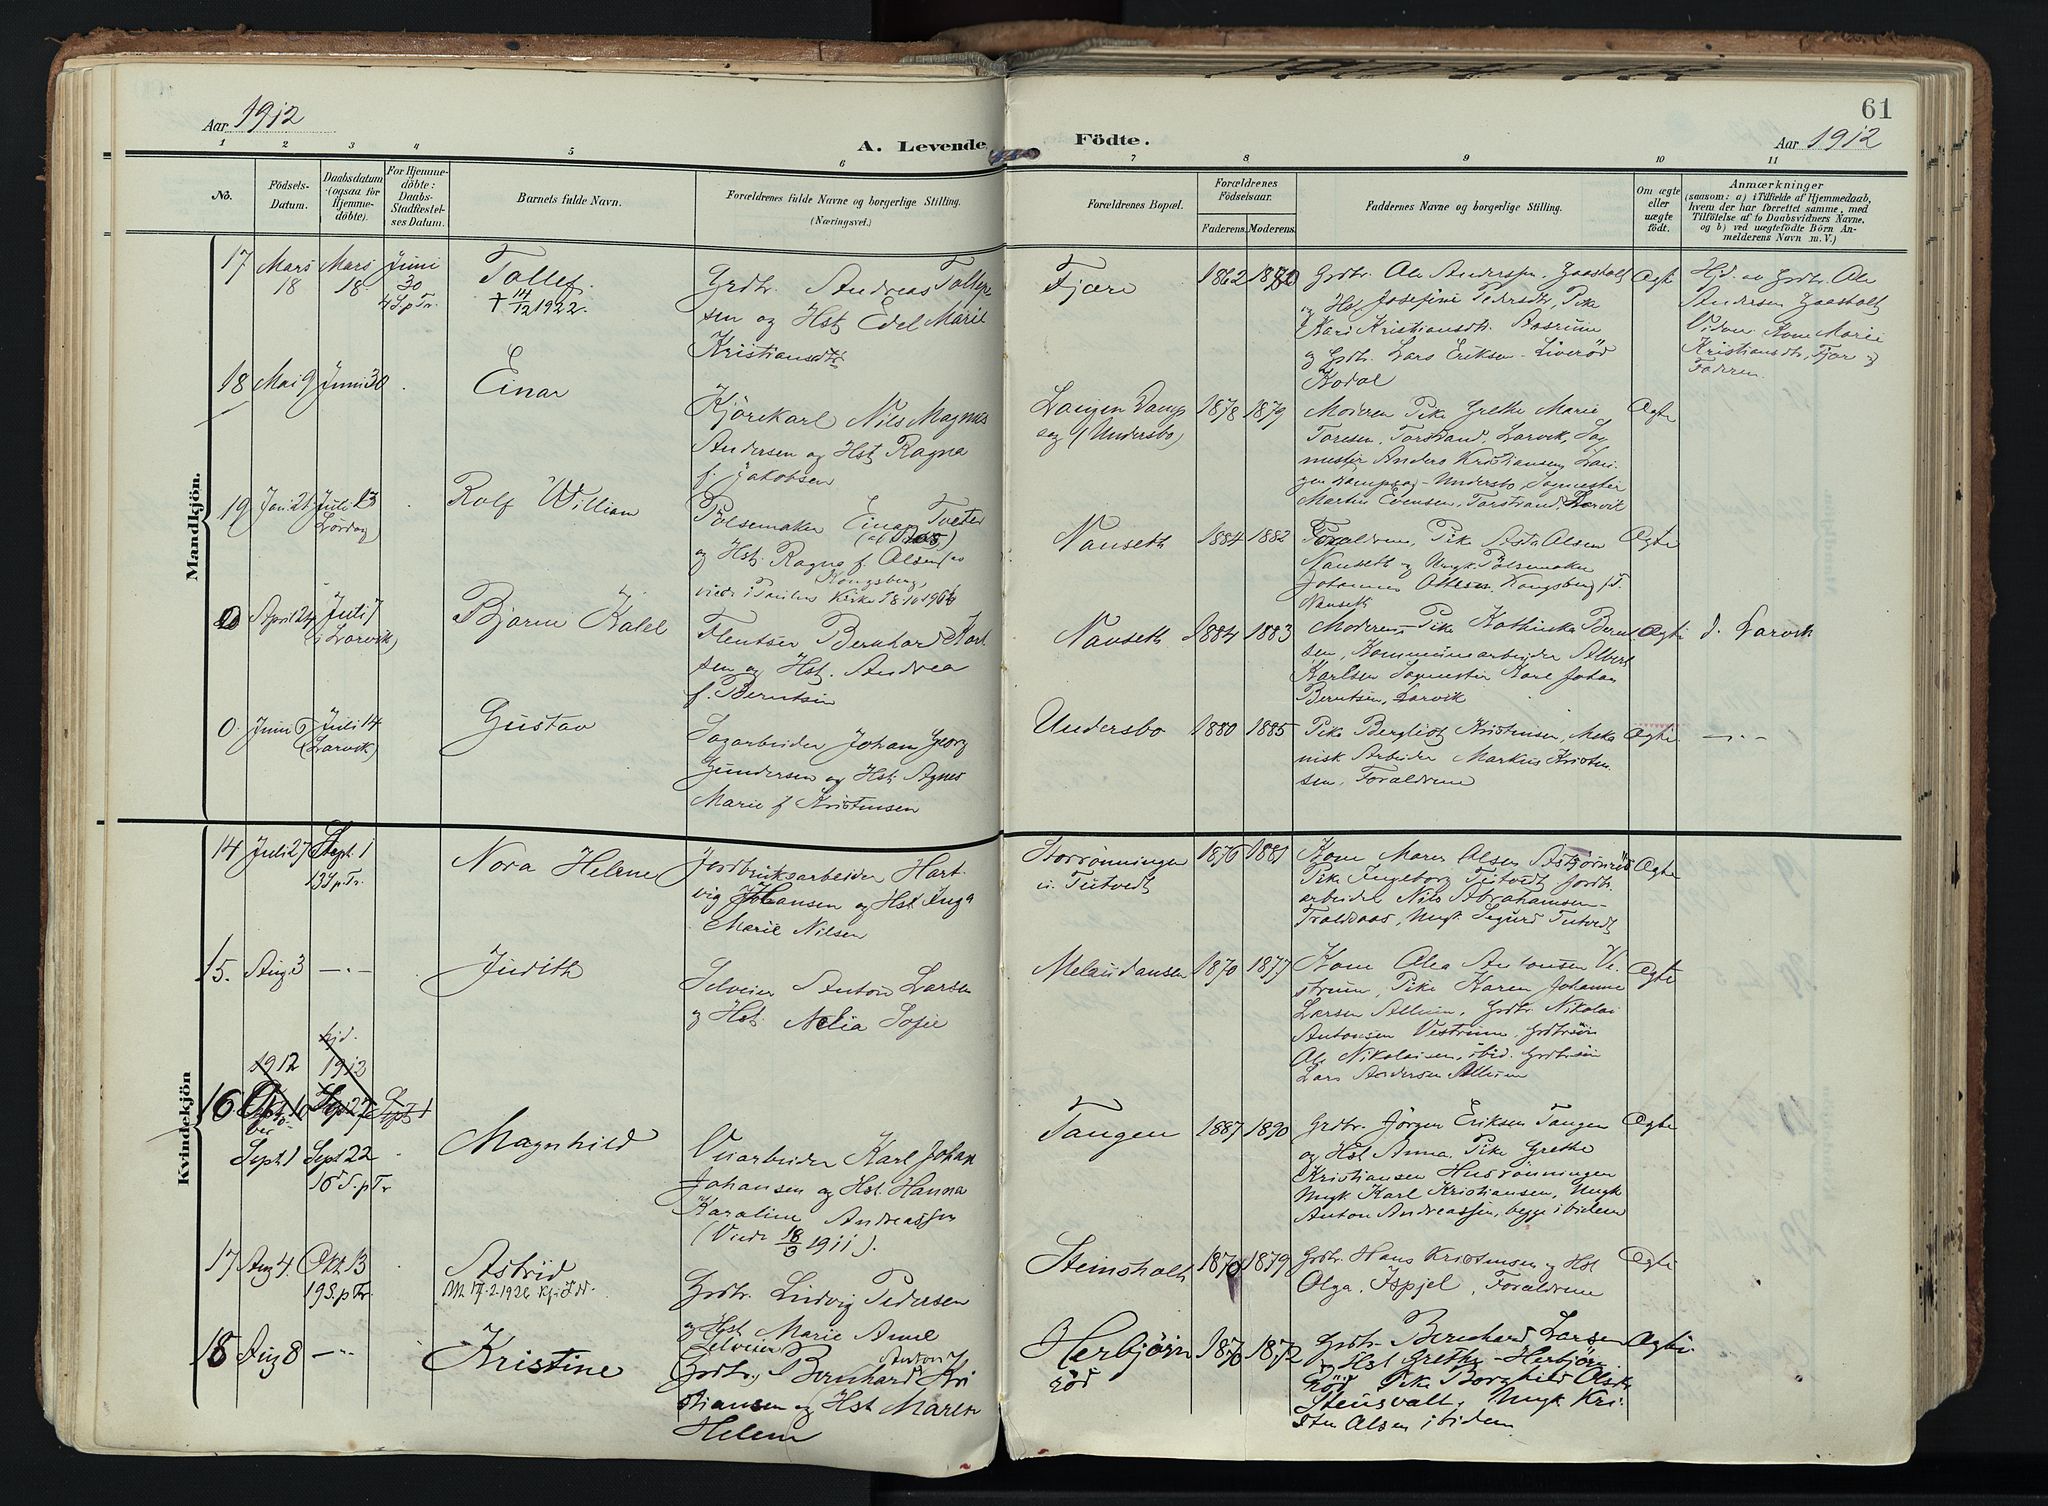 61
Aar 1912
A. Levende Födte.
Aar 1912
1 2 3 4 5 6 7 8 9 10 11
No.
Födsels-
Datum.
Daabsdatum
(ogsaa for
Hjemme-
döbte).
For Hjemme-
döbte:
Daabs-
Stadfæstel-
ses Datum.
Barnets fulde Navn.
Forældrenes fulde Navne og borgerlige Stilling.
(Næringsvei.)
Forældrenes Bopæl.
Forældrenes
Födselsaar.
Faderens. Moderens.
Faddernes Navne og borgerlige Stilling.
Om ægte
eller
uægte
födt.
Anmærkninger
(saasom: a) i Tilfælde af Hjemmedaab,
hvem der har forrettet samme, med
Tilföielse af to Daabsvidners Navne,
og b) ved uægtefödte Börn An-
melderens Navn m. V.)
Mandkjön.
17 Mars 18 Mars 18 Juni 30
4 S. p Tr.
Tollef
† 14/12 1922.
Grdbr. Andreas Tollef
sen og Hst Edel Marie
Kristiansdtr
Fjære
1862
Grdbr. Ole Andersen Gaasholt
og Hst Josefine Pedersdtr, Pike
Kari Kristiansdtr. Aasrum
og Grdbr. Lars Eriksen Liveröd
Kodal
Ægte
Hjd. av Grdbr. Ole
Andersen Gaasholt
Vidne Kone Marie
Kristiansdtr, Fjære og
Faderen.
18 Mai 9 Juni 30
Einar
Kjörekarl Nils Magnus
Andersen og Hst Ragna
f. Jakobsen
Laugen Damp
sag (Undersbo)
1878 1879
Moderen Pike Grethe Marie
Toresen, Torstrand, Larvik, Sag
mester Anders Kristiansen, Lau-
gen Dampsag - Undersbo, Sagmester
Martin Evensen, Torstrand, Larvik
Ægte
19 Juli 13
(Lördag)
Rolf William
Pölsemaker Einar Tveter
og Hst. Ragna f Olsen
Kongsberg
Kirke
Nanseth
1884 1882
Forældrene, Pike Olsen
Nanseth og Ungk. Pölsemaker
Johannes Ottesen Kongsberg
Nanseth
Ægte
April 24 Juli 7
(Larvik)
Bjarne Kalel
Flentser Bernhard Karl
sen og Hst. Andrea
f. Berntsen
Nanseth
1884 1883
Moderen, Pike Kathinka Bernt
sen, Kommunearbeider Albert
Karlsen Sagmester Karl Johan
Berntsen, Larvik
Ægte
d. Larvik
0. Juni 6 Juli 14
(Larvik)
Gustav
Sagarbeider Johan Georg
Gundersen og Hst Agnes
Marie f Kristensen
Undersbo
1880 1885
Pike Bergliot Kristensen, Meka
nisk Arbeider Markus Kristen
sen, Forældrene
Ægte
—"—
Kvindekjön
14 Juli 27 Sept. 1
13 S p Tr.
Nora Helene
Jordbruksarbeider Hart
vig Johansen og Hst. Inga
Marie Nilsen
Storrönningen
u. Teitvedt
1876 1881
Kone Maren Olsen Asbjörnröd
Pike Ingeborg Teitvedt Jordbr.
arbeider Nils Abrahamsen
Traldaas, Ungk. Sigurd Teitvedt
Ægte
15. Aug 3 —"—
Judith
Selveier Anton Larsen
og Hst. Nelia Sofie
Melau
1870 1877
Kone Olea Antonsen Ve-
strum, Pike Karen Johanne
Larsen Allum, Grdbr. Nikolai
Antonsen Vestrum, Grdbrsön
Ole Nikolaisen, ibid. Grdbrsön
Lars Andersen Allum
Ægte
1912 hjd. 1912
16 Sept 1 Sept 22
16 S. p Tr
Magnhild
Veiarbeider Karl Johan
Johansen og Hst. Hanna
Karoline Andreassen
(Viede 18/3 1911).
Tangen
1887 1890
Grdbr. Jörgen Eriksen Tangen
og Hst Anna, Pike Grethe
Kristiansen Husrönningen
Ungk Karl Kristiansen, Ungk
Anton Andreassen, begge ibidem
Ægte
17 Aug 4. Okt 13
19 S. p Tr
Astrid
Grdbr. Ludvig Pedersen
og Hst. Marie Anne
Steinsholt
1870 1879
Grdbr. Hans Kristensen og Hst
Olga, Ispjel, Forældrene
Ægte
18 Aug 8 —"—
Kristine
Selveier
Grdbr. Bernhard Anton Kri
stiansen og Hst Maren
Helene
Herbjörn
röd
1870 1872
Grdbr. Bernhard Larsen
og Hst Grethe Herbjörn
röd Pike Borghild Olsdtr
Stensvalt, Ungk Kri
sten Olsen ibidem.
Ægte